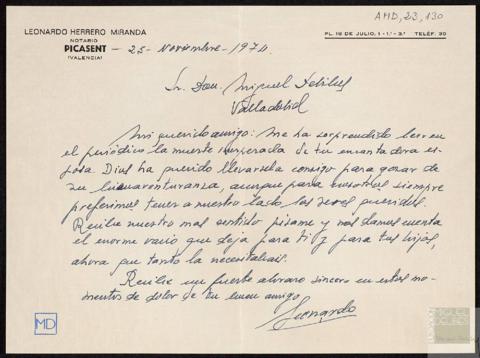 AMD, 23, 130
LEONARDO HERRERO MIRANDA
NOTARIO
PICASENT
(VALENCIA)
PL. 18 DE JULIO, 1-1.º-3.ª TELÉF. 30
25-Noviembre-1974.
Sr. Don Miguel Delibes
Valladolid
Mi querido amigo: Me ha sorprendido leer en
el periódico la muerte inesperada de tu encantadora es-
posa. Dios ha querido llevarsela consigo para gozar de
su bienaventuranza, aunque para nosotros siempre
preferimos tener a nuestro lado los seres queridos.
Recibe nuestro mas sentido pésame y nos damos cuenta
el enorme vacio que deja para ti y para tus hijos,
ahora que tanto la necesitabais.
Recibe un fuerte abrazo sincero en estos mo-
mentos de dolor de tu buen amigo
Leonardo
MD